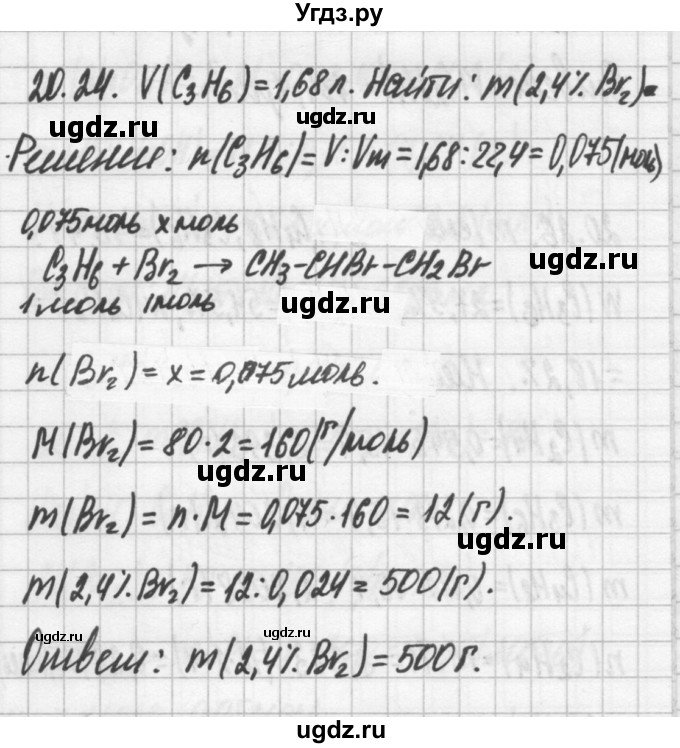 Угдз.ру
20.24. V(C₃H₆)=1,68 л. Найти: m(2,4% Br₂)=
ugdz.ru ugdz.ru
Решение: n(C₃H₆)=V:Vm=1,68:22,4=0,075(моль)
0,075моль x моль
C₃H₆ + Br₂ → CH₃-CHBr-CH₂Br ugdz.ru
1 моль 1моль ugdz.ru
n(Br₂)=x=0,075моль.
M(Br₂)=80·2=160(г/моль)
ugdz.ru
m(Br₂)=n·M=0,075·160=12(г).
ugdz.ru
m(2,4% Br₂)=12:0,024=500(г).
ugdz.ru ugdz.ru
Ответ: m(2,4% Br₂)=500г.
ugdz.ru ugdz.ru
ugdz.ru